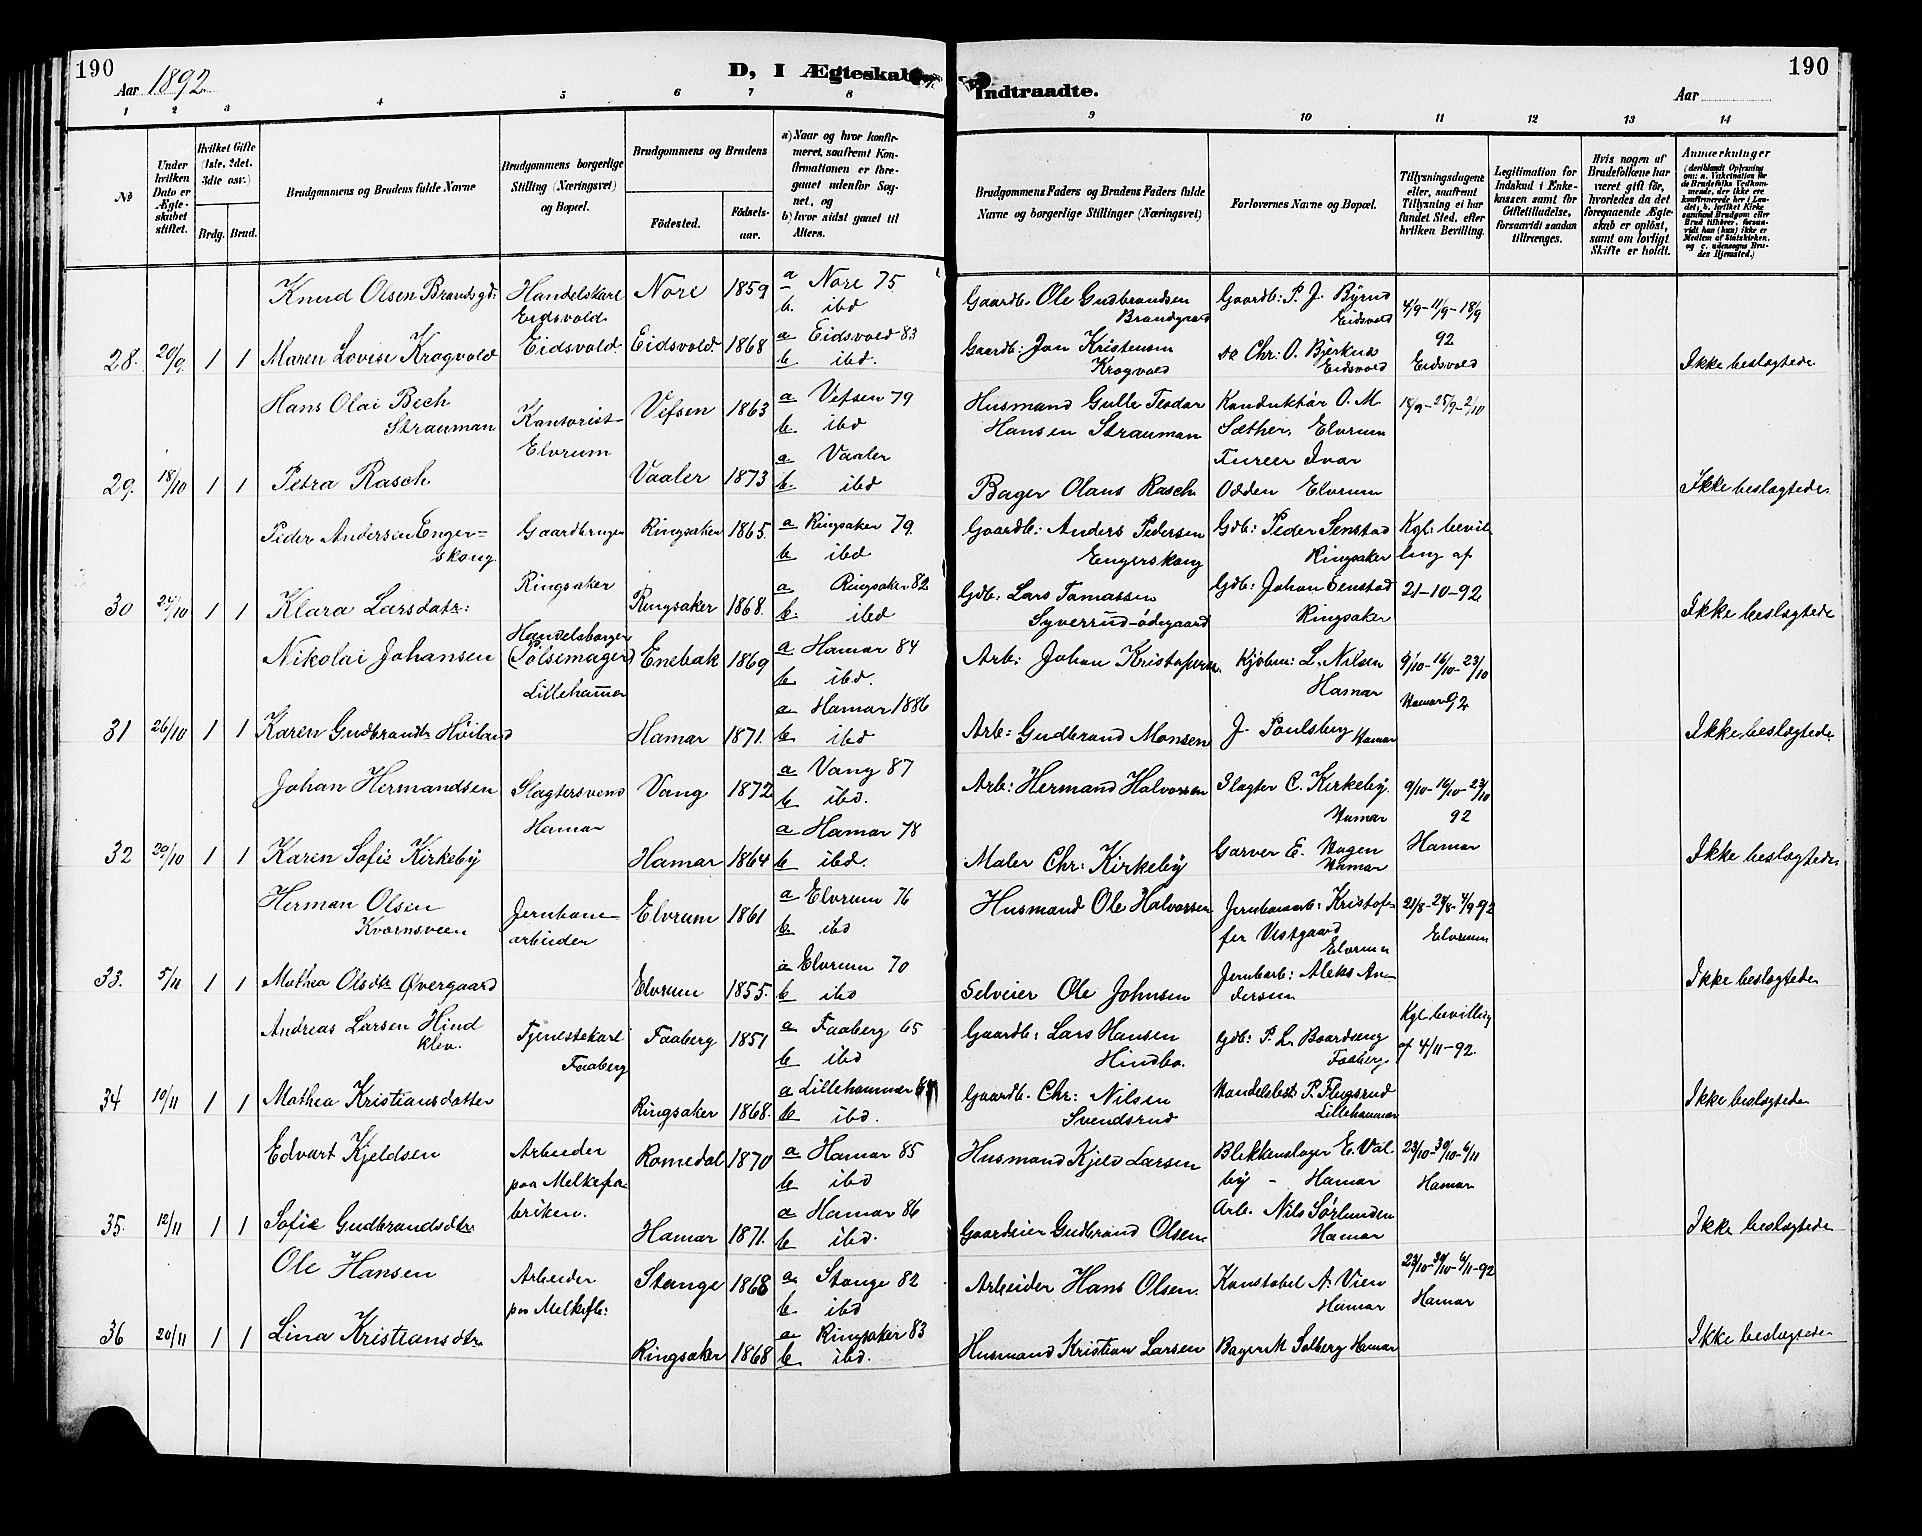 190
Aar 1892
D, I Ægteskab
1 2 3 4 5 6 7 8
No
Under hvilken Dato er Ægteskabet stiftet.
Hvilket Gifte (1ste, 2det, 3die osv.)
Brdg. Brud.
Brudgommens og Brudens fulde Navne
Brudgommens borgerlige Stilling (Næringsvei) og Bopæl.
Brudgommens og Brudens
Fødested.
Fødselsaar.
a) Naar og hvor konfirmeret, saafremt Konfirmationen er foregaaet udenfor Sognet, og
b) hvor sidst ganet til Alters.
Indtraadte.
Aar
190
9 10 11 12 13 14
Brudgommens Faders og Brudens Faders fulde Navne og borgerlige Stillinger (Næringsvei)
Forlovernes Navne og Bopæl.
Tillysningsdagene eller, saafremt Tillysning ei har fundet Sted, efter hvilken Bevilling.
Legitimation for Indskud i Enkekassen samt for Giftetilladelse, forsaavidt saadan tiltrænges.
Hvis nogen af Brudefolkene har været gift før, hvorledes da det foregaaende Ægteskab er opløst, samt om lovligt Skifte er holdt.
Anmærkninger
Knud Olsen Brandsgd: Handelskarl Eidsvold Nore 1859 a Nore 75 b. ibd Gaardb. Ole Gudbrandsen Brandgaard Gaardb: P. J. Byrud Eidsvold 4/9-11/9-18/9 92 Eidsvold
28. 20/9 1 1 Maren Lovise Krogvold Eidsvold Eidsvold 1868 a Eidsvold 83 b. ibd. Gaardb: Jon Kristensen Krogvold do Chr: O. Bjerknes Eidsvold Ikke beslægtede
Hans Olai Bech Strauman Kontorist Elvrum Vefsen 1863 a Vefsen 79 b. ibd Husmand Gulle Teodor Hansen Strauman Konduktør O. M. Sæther, Elvrum 18/9-25/9-2/10
29. 18/10 1 1 Petra Rasch Vaaler 1873 a Vaaler b. ibd Bager Olaus Rasch Furer Ivar Odden Elvrum Ikke beslægtede
Peder Andersen Engerskoug Gaardbruger Ringsaker Ringsaker 1865. a Ringsaker 79. b ibd Gaardb: Anders Pedersen Engerskoug Gdb: Peder Senstad Ringsaker Kgl: bevilling af 21-10-92
30 24/10 1 1 Klara Larsdatr: Ringsaker 1868. a Ringsaker 82 b. ibd Gdb: Lars Tomassen Syverrud-ødegaard Gdb: Johan Senstad Ringsaker Ikke beslægtede
Nikolai Johansen Handelsborger (Pølsemager) Lillehamer Enebak 1869 a Hamar 84 b. ibd. Arb: Johan Kristofersen Kjøbm: L. Nilsen Hamar 9/10-16/10-23/10 92 Hamar
31 26/10 1 1 Karen Gudbrandtr Høilund Hamar 1871. a Hamar 1886 b. ibd Arb: Gudbrand Monsen J. Poulsberg Hamar Ikke beslægtede
Johan Hermandsen Slagtersvend Hamar Vang 1872 a Vang 87 b ibd. Arb: Hermand Halvorsen Slagter C. Kirkeby. Hamar 9/10-16/10-23/10 92 Hamar
32 29/10 1 1 Karen Sofie Kirkeby Hamar 1864 a Hamar 78 b ibd. Maler Chr: Kirkeby Garver E. Hagen Hamar Ikke beslægtede
Herman Olsen Kværnsveen Jernbanearbeider Elvrum 1861 a Elvrum 76 b. ibd Husmand Ole Halvorsen Jernbanearb: Kristoffer Vestgaard Elvrum 21/8-28/8-4/9-92 Elvrum
33. 5/11 1 1 Mathea Olsdtr Øvergaard Elvrum 1855. a Elvrum 70 b ibd Selveier Ole Johnsen Jernbarb: Aleks Andersen Ikke beslægtede
Andreas Larsen Hindklev. Tjenestekarl Faaberg Faaberg 1851 a Faaberg 65 b ibd Gaardb: Lars Hansen Gdb: P. L. Baardseng Faaberg Kgl bevilling af 4/11-92.
34 10/11 1 1 Mathea Kristiansdatter Ringsaker 1868. a Lillehammer b. ibd. Gaardb. Chr: Nilsen Svendsrud Handelsbest: P. Flugsrud Lillehammer Ikke beslægtede
Edvart Kjeldsen Arbeider paa Melkefabriken. Romedal 1870 a Hamar 85 b ibd Husmand Kjeld Larsen Blikkenslager E. Valby - Hamar 23/10-30/10-6/11 Hamar
35. 12/11 1 1 Sofie Gudbrandsdtr Hamar 1871. a Hamar 86 b ibd. Gaardeier Gudbrand Olsen Arb. Nils Sørlunden Hamar Ikke beslægtede
Ole Hansen Arbeider paa Melkefb: Stange 1868 a. Stange 82 b. ibd Arbeider Hans Olsen. Konstabel A. Vien Hamar 23/10-30/10-6/11-92 Hamar
36 20/11 1 1 Lina Kristiansdtr Ringsaker 1868 a. Ringsaker 83 b ibd. Husmand Kristian Larsen Bager M Solberg Hamar Ikke beslægtede